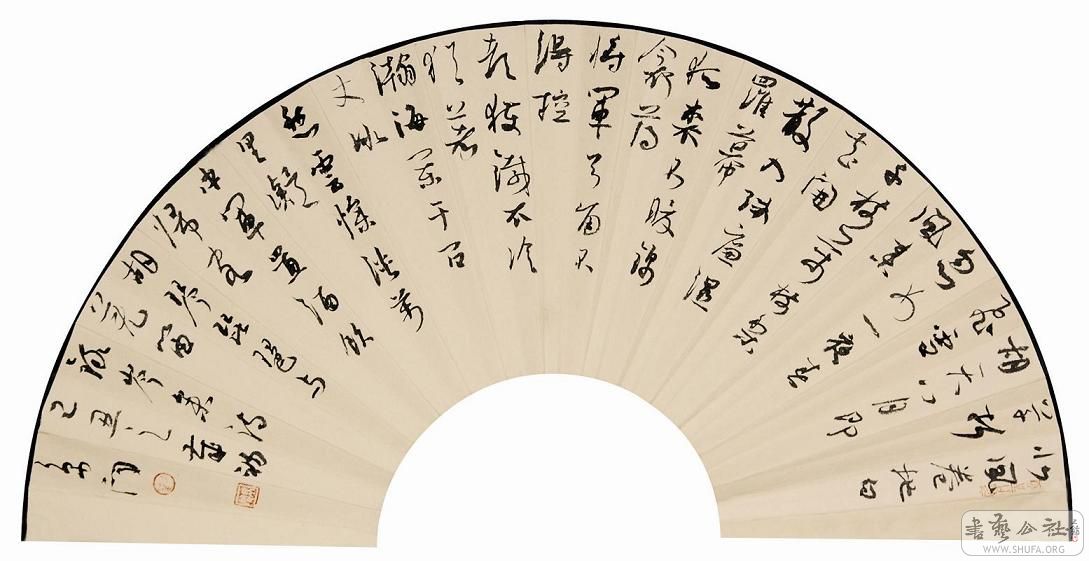 北風卷地白
草折
胡天八月即
飛雪
忽如一夜春
風來
千樹万樹梨
花開
散入珠簾濕
羅幕
狐裘不暖錦
衾薄
將軍角弓不
得控
都護鐵衣冷
難著
瀚海闌干百
丈冰
愁雲慘淡萬
里凝
中軍置酒飲
歸客
胡琴琵琶與
羌笛
錄岑參詩
己丑之
書藝公社
WWW.SHUFA.ORG